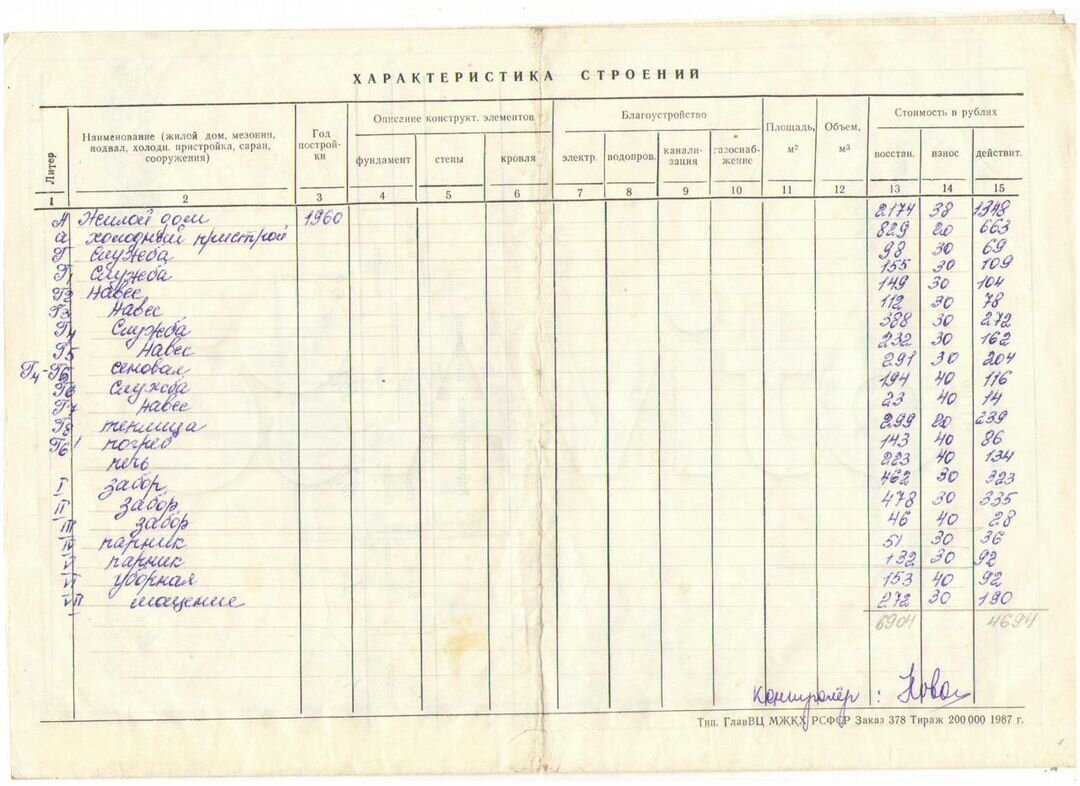 ХАРАКТЕРИСТИКА СТРОЕНИЙ
Литер
Наименование (жилой дом, мезонин, подвал, холодн. пристройка, сараи, сооружения)
Год постройки
Описание конструкт. элементов
Благоустройство
Площадь, м²
Объем, м³
Стоимость в рублях
фундамент стены кровля электр. водопров. канализация газоснабжение восстан. износ действит.
1 2 3 4 5 6 7 8 9 10 11 12 13 14 15
А Жилой дом 1960 2174 38 1348
а холодный пристрой 829 20 663
Г Служба 98 30 69
Г1 Служба 155 30 109
Г2 Навес 149 30 104
Г3 Навес 112 30 78
Г4 Служба 388 30 272
Г5 Навес 232 30 162
Г4-Г5 сеновал 291 30 204
Г6 Служба 194 40 116
Г7 Навес 23 40 14
Г8 теплица 299 20 239
Г6' погреб 143 40 86
печь 223 40 134
I забор 462 30 323
II забор 478 30 335
III забор 46 40 28
IV парник 51 30 36
V парник 132 30 92
VI уборная 153 40 92
VII мощение 272 30 190
6904 4694
Контролёр:
Тип. ГлавВЦ МЖКХ РСФСР Заказ 378 Тираж 200 000 1987 г.